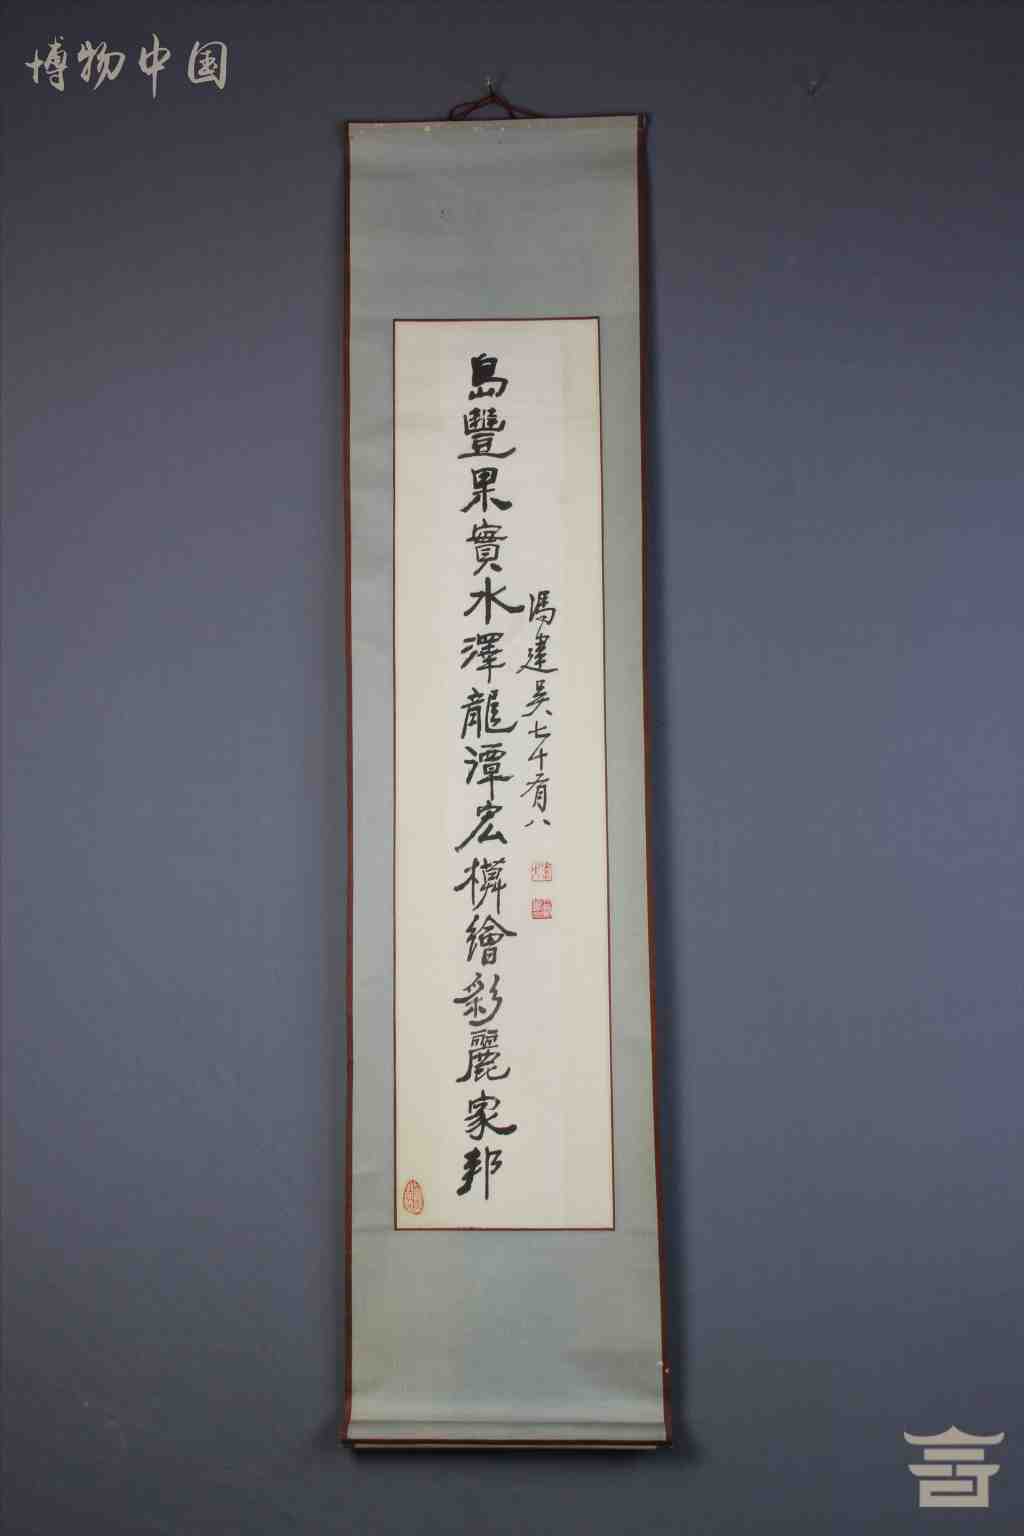 博物中国
島豐果實水澤龍潭宏橅繪彩麗家邦
馮建吴七十有八